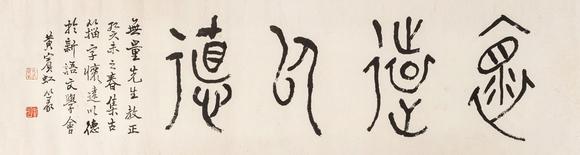 懷遠以德
無量先生教正
癸未之春集古
籀字懷遠以德
於新語文學會
黃賓虹篆